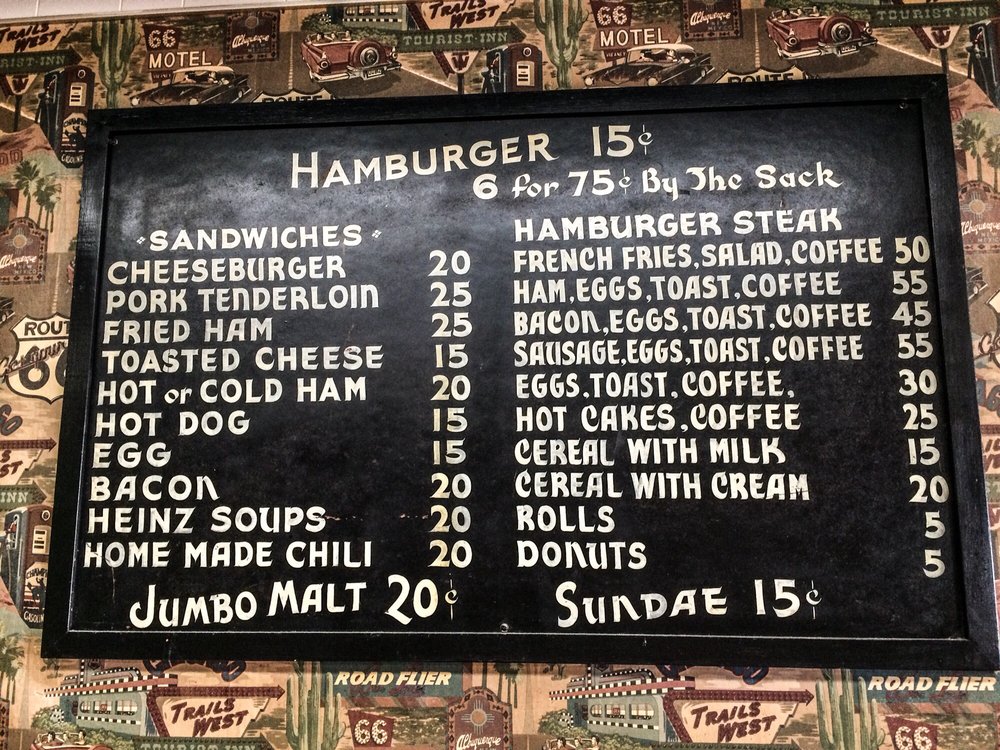 TRAILS WEST
66
MOTEL
Albuquerque
TOURIST-INN
ROUTE
66
MOTEL
Albuquerque
TRAILS WEST
TOURIST-INN
HAMBURGER 15¢
6 for 75¢ By The Sack
SANDWICHES
CHEESEBURGER 20
PORK TENDERLOIN 25
FRIED HAM 25
TOASTED CHEESE 15
HOT or COLD HAM 20
HOT DOG 15
EGG 15
BACON 20
HEINZ SOUPS 20
HOME MADE CHILI 20
JUMBO MALT 20¢
HAMBURGER STEAK
FRENCH FRIES, SALAD, COFFEE 50
HAM, EGGS, TOAST, COFFEE 55
BACON, EGGS, TOAST, COFFEE 45
SAUSAGE, EGGS, TOAST, COFFEE 55
EGGS, TOAST, COFFEE, 30
HOT CAKES, COFFEE 25
CEREAL WITH MILK 15
CEREAL WITH CREAM 20
ROLLS 5
DONUTS 5
SUNDAE 15¢
ROUTE
66
ROAD FLIER
TRAILS WEST
66
Albuquerque
TRAILS WEST
ROAD FLIER
66